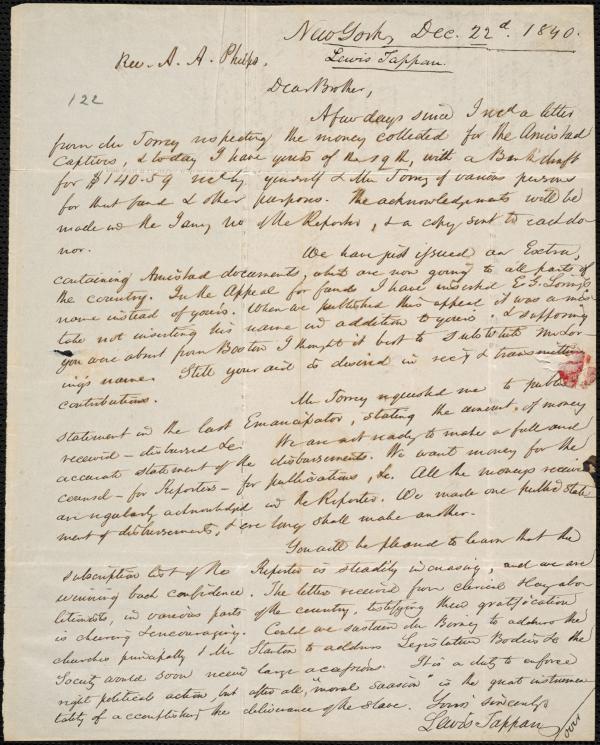 New York, Dec. 22d. 1840.
Lewis Tappan.
Rev. A. A. Phelps,
122
Dear Brother,
A few days since I recd a letter
from Mr Torrey respecting the money collected for the Amistad
Captives, & today I have yours of the 19th, with a Bank draft
for $140.59 recd by yourself & Mr Torrey of various persons
for that fund & other purposes. The acknowledgments will be
made in the Jany no of the Reporter, & a copy sent to each do-
nor.
We have just issued an Extra,
containing Amistad documents, which are now going to all parts of
the country. In the Appeal for funds I have inserted E. G. Loring's
name instead of yours. When we published this appeal it was a mis-
take not inserting his name in addition to yours, & supposing
you were absent from Boston I thought it best to substitute Mr Lor-
ing's name. Still your aid is desired in recg & transmitting
contributions.
Mr Torrey requested me to publish
statement in the last Emancipator, stating the amount of money
received - disbursed &c. We are not ready to make a full and
accurate statement of the disbursements. We want money for the
counsel - for Reporters - for publications, &c. All the moneys receive
are regularly acknowledged in the Reporter. We made one publd state
ment of disbursements, & ere long shall make another.
You will be pleased to learn that the
subscription list of the Reporter is steadily increasing, and we are
winning back confidence. The letters received from clerical & lay abo-
litionists, in various parts of the country, testifying their gratification
is cheering & encouraging. Could we sustain Mr Birney to address the
churches principally & Mr Stanton to address Legislative Bodies &c the
Society would soon receive large accessions. It is a duty to enforce
right political action, but after all, "moral suasion" is the great instrumen
tality of accomplishing the deliverance of the slave. Yours sincerely,
Lewis Tappan
over